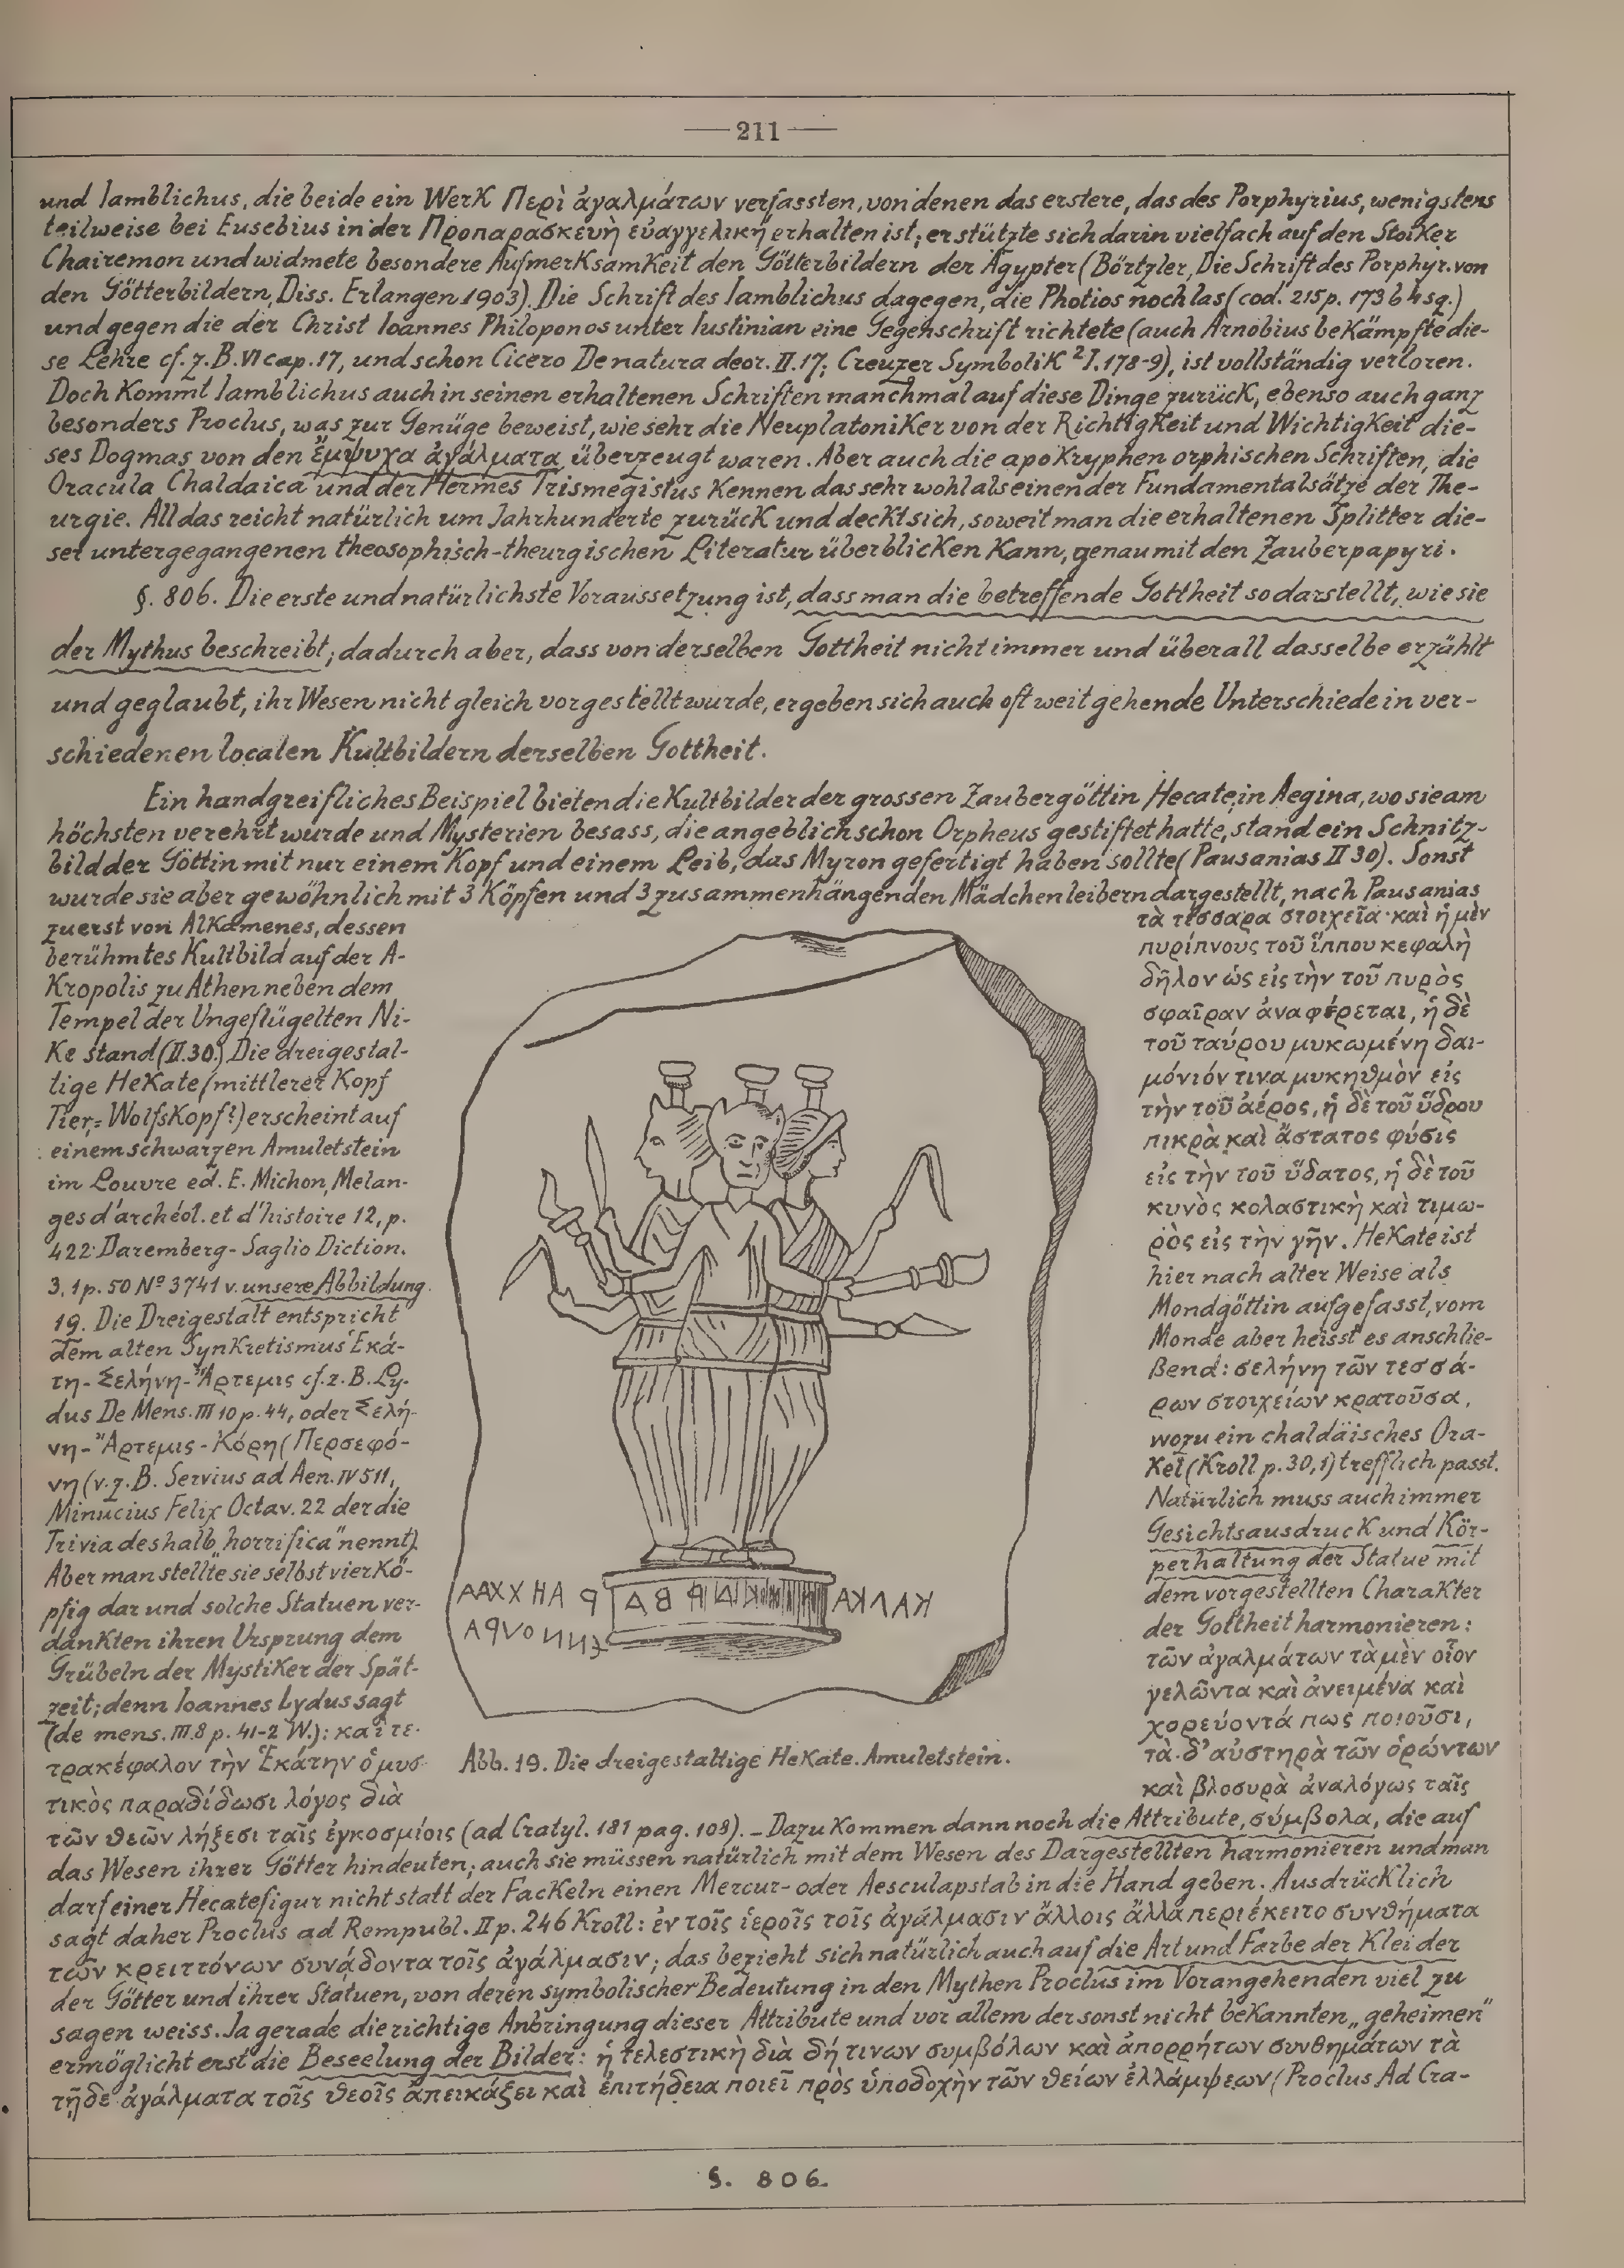 211
und Iamblichus, die beide ein Werk Περὶ ἀγαλμάτων verfassten, von denen das erstere, das des Porphyrius, wenigstens
teilweise bei Eusebius in der Προπαρασκευὴ εὐαγγελικὴ erhalten ist; er stützte sich darin vielfach auf den Stoiker
Chairemon und widmete besondere Aufmerksamkeit den Götterbildern der Ägypter (Börtzler, Die Schrift des Porphyr. von
den Götterbildern, Diss. Erlangen 1903). Die Schrift des Iamblichus dagegen, die Photios noch las (cod. 215 p. 173 b 4 sq.)
und gegen die der Christ Ioannes Philoponos unter Iustinian eine Gegenschrift richtete (auch Arnobius bekämpfte die-
se Lehre cf. z. B. VI cap. 17, und schon Cicero De natura deor. II. 17; Creuzer Symbolik ² I. 178-9), ist vollständig verloren.
Doch kommt Iamblichus auch in seinen erhaltenen Schriften manchmal auf diese Dinge zurück, ebenso auch ganz
besonders Proclus, was zur Genüge beweist, wie sehr die Neuplatoniker von der Richtigkeit und Wichtigkeit die-
ses Dogmas von den ἔμψυχα ἀγάλματα überzeugt waren. Aber auch die apokryphen orphischen Schriften, die
Oracula Chaldaica und der Hermes Trismegistus kennen das sehr wohl als einen der Fundamentalsätze der The-
urgie. All das reicht natürlich um Jahrhunderte zurück und deckt sich, soweit man die erhaltenen Splitter die-
ser untergegangenen theosophisch-theurgischen Literatur überblicken kann, genau mit den Zauberpapyri.
§. 806. Die erste und natürlichste Voraussetzung ist, dass man die betreffende Gottheit so darstellt, wie sie
der Mythus beschreibt; dadurch aber, dass von derselben Gottheit nicht immer und überall dasselbe erzählt
und geglaubt, ihr Wesen nicht gleich vorgestellt wurde, ergeben sich auch oft weit gehende Unterschiede in ver-
schiedenen localen Kultbildern derselben Gottheit.
Ein handgreifliches Beispiel bieten die Kultbilder der grossen Zaubergöttin Hecate; in Aegina, wo sie am
höchsten verehrt wurde und Mysterien besass, die angeblich schon Orpheus gestiftet hatte, stand ein Schnitz-
bild der Göttin mit nur einem Kopf und einem Leib, das Myron gefertigt haben sollte (Pausanias II 30). Sonst
wurde sie aber gewöhnlich mit 3 Köpfen und 3 zusammenhängenden Mädchenleibern dargestellt, nach Pausanias
zuerst von Alkamenes, dessen
berühmtes Kultbild auf der A-
kropolis zu Athen neben dem
Tempel der Ungeflügelten Ni-
ke stand (II. 30.) Die dreigestal-
tige Hekate (mittlerer Kopf
Tier,= Wolfskopf?) erscheint auf
einem schwarzen Amuletstein
im Louvre ed. E. Michon, Melan-
ges d'archéol. et d'histoire 12, p.
422 Daremberg-Saglio Diction.
3, 1 p. 50 Nº 3741 v. unsere Abbildung
19. Die Dreigestalt entspricht
dem alten Synkretismus Ἑκά-
τη-Σελήνη-Ἄρτεμις cf. z. B. Ly-
dus De Mens. III 10 p. 44, oder Σελή-
νη-Ἄρτεμις-Κόρη (Περσεφό-
νη (v. z. B. Servius ad Aen. IV 511,
Minucius Felix Octav. 22 der die
Trivia deshalb „horrifica" nennt).
Aber man stellte sie selbst vierkö-
pfig dar und solche Statuen ver-
dankten ihren Ursprung dem
Grübeln der Mystiker der Spät-
zeit; denn Ioannes Lydus sagt
(de mens. III. 8 p. 41-2 W.): καὶ τε-
τρακέφαλον τὴν Ἑκάτην ὁ μυσ-
τικὸς παραδίδωσι λόγος διὰ
τὰ τέσσαρα στοιχεῖα· καὶ ἡ μὲν
πυρίπνους τοῦ ἵππου κεφαλὴ
δῆλον ὡς εἰς τὴν τοῦ πυρὸς
σφαῖραν ἀναφέρεται, ἡ δὲ
τοῦ ταύρου μυκωμένη δαι-
μόνιόν τινα μυκηθμὸν εἰς
τὴν τοῦ ἀέρος, ἡ δὲ τοῦ ὕδρου
πικρὰ καὶ ἄστατος φύσις
εἰς τὴν τοῦ ὕδατος, ἡ δὲ τοῦ
κυνὸς κολαστικὴ καὶ τιμω-
ρὸς εἰς τὴν γῆν. Hekate ist
hier nach alter Weise als
Mondgöttin aufgefasst, vom
Monde aber heisst es anschlie-
ßend: σελήνη τῶν τεσσά-
ρων στοιχείων κρατοῦσα,
wozu ein chaldäisches Ora-
kel (Kroll p. 30, 1) trefflich passt.
Natürlich muss auch immer
Gesichtsausdruck und Kör-
perhaltung der Statue mit
dem vorgestellten Charakter
der Gottheit harmonieren:
τῶν ἀγαλμάτων τὰ μὲν οἷον
γελῶντα καὶ ἀνειμένα καὶ
χορεύοντά πως ποιοῦσι,
τὰ δ' αὐστηρὰ τῶν ὁρώντων
καὶ βλοσυρὰ ἀναλόγως ταῖς
Abb. 19. Die dreigestaltige Hekate. Amuletstein.
τῶν θεῶν λήξεσι ταῖς ἐγκοσμίοις (ad Cratyl. 181 pag. 108). – Dazu kommen dann noch die Attribute, σύμβολα, die auf
das Wesen ihrer Götter hindeuten; auch sie müssen natürlich mit dem Wesen des Dargestellten harmonieren und man
darf einer Hecatefigur nicht statt der Fackeln einen Mercur- oder Aesculapstab in die Hand geben. Ausdrücklich
sagt daher Proclus ad Rempubl. II p. 246 Kroll: ἐν τοῖς ἱεροῖς τοῖς ἀγάλμασιν ἄλλοις ἄλλα περιέκειτο συνθήματα
τῶν κρειττόνων συνᾴδοντα τοῖς ἀγάλμασιν; das bezieht sich natürlich auch auf die Art und Farbe der Kleider
der Götter und ihrer Statuen, von deren symbolischer Bedeutung in den Mythen Proclus im Vorangehenden viel zu
sagen weiss. Ja gerade die richtige Anbringung dieser Attribute und vor allem der sonst nicht bekannten „geheimen"
ermöglicht erst die Beseelung der Bilder: ἡ τελεστικὴ διὰ δή τινων συμβόλων καὶ ἀπορρήτων συνθημάτων τὰ
τῇδε ἀγάλματα τοῖς θεοῖς ἀπεικάζει καὶ ἐπιτήδεια ποιεῖ πρὸς ὑποδοχὴν τῶν θείων ἐλλάμψεων (Proclus Ad Cra-
§. 806.